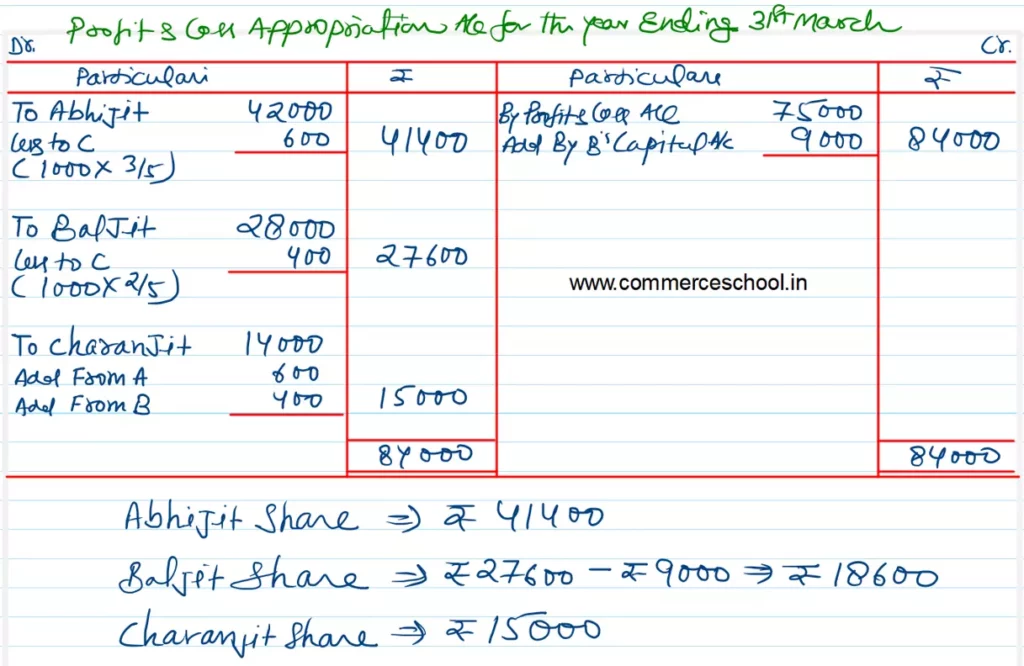 Profit & Loss Appropriation A/c for the year Ending 31st March
Dr. Cr.
Particulars ₹ Particulars ₹
To Abhijit 42000 By Profit & Loss A/c 75000
Less to C 600 41400 Add By B's Capital A/c 9000 84000
(1000 x 3/5)
To Baljit 28000
Less to C 400 27600
(1000 x 2/5)
www.commerceschool.in
To Charanjit 14000
Add From A 600
Add From B 400 15000
84000 84000
Abhijit Share ⇒ ₹ 41400
Baljit Share ⇒ ₹27600 - ₹9000 ⇒ ₹18600
Charanjit Share ⇒ ₹15000